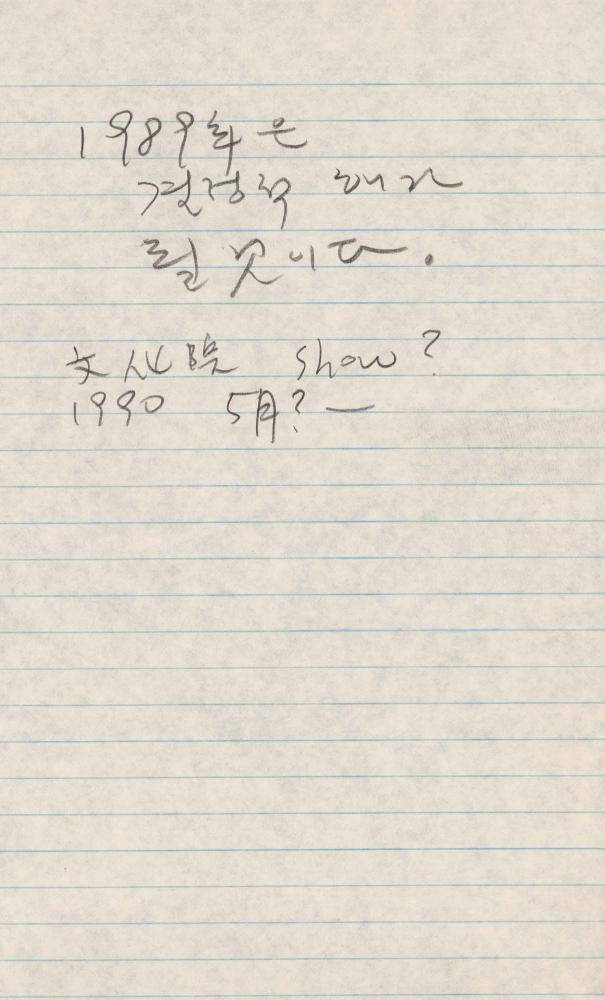 1989年은
결정적 해가
될 것이다.
文化院 show?
1990 5月? —